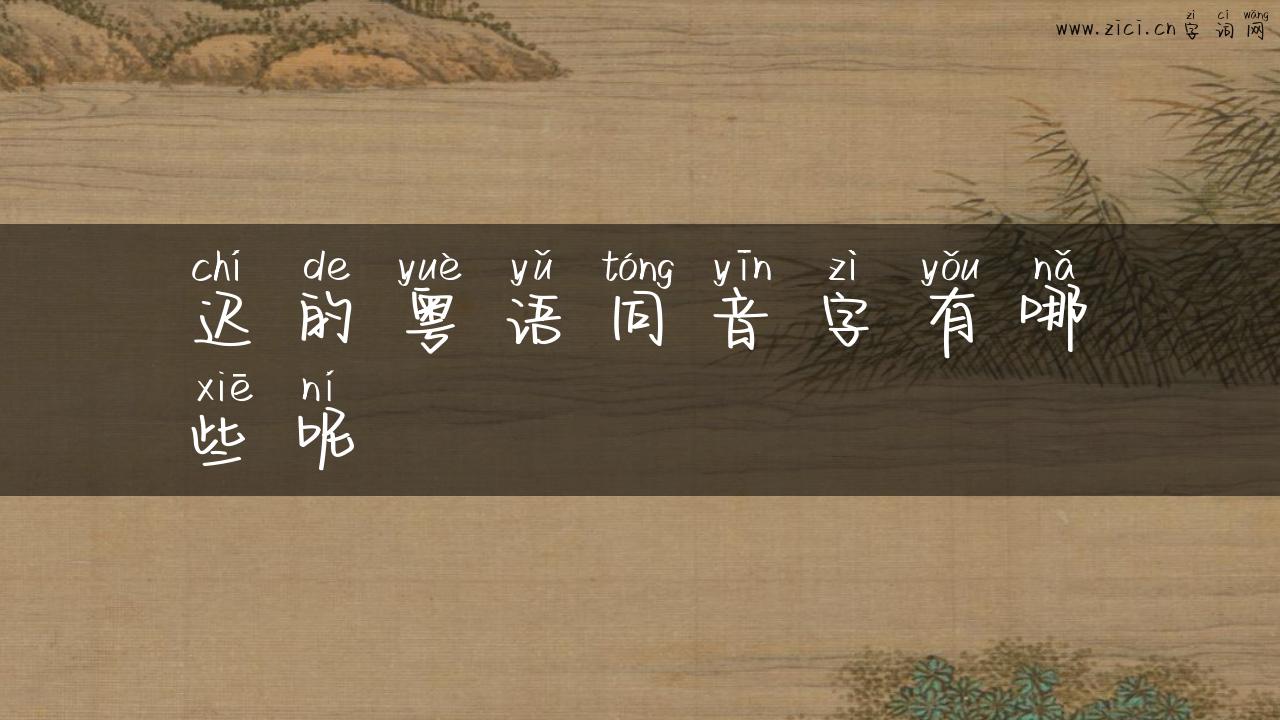 zì cí wǎng
www.zici.cn 字词网
chí de yuè yǔ tóng yīn zì yǒu nǎ
迟的粤语同音字有哪
xiē ní
些呢